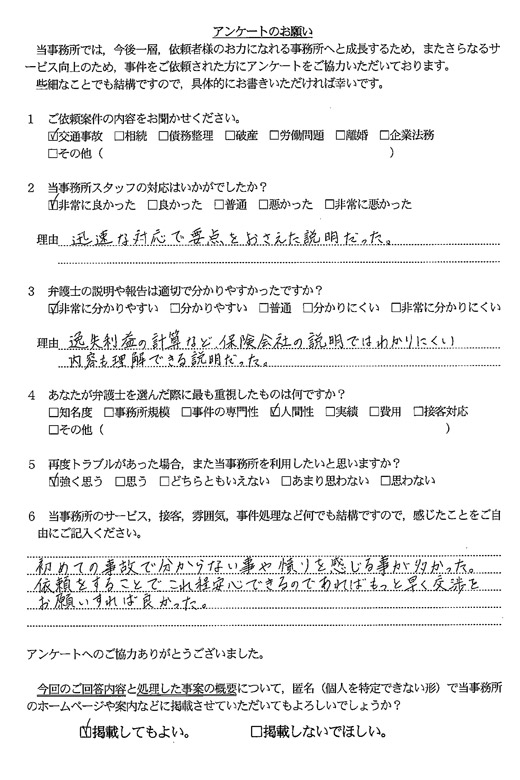 アンケートのお願い
当事務所では，今後一層，依頼者様のお力になれる事務所へと成長するため，またさらなるサ
ービス向上のため，事件をご依頼された方にアンケートをご協力いただいております。
些細なことでも結構ですので，具体的にお書きいただければ幸いです。
1 ご依頼案件の内容をお聞かせください。
☑交通事故 □相続 □債務整理 □破産 □労働問題 □離婚 □企業法務
□その他（ ）
2 当事務所スタッフの対応はいかがでしたか？
☑非常に良かった □良かった □普通 □悪かった □非常に悪かった
理由 迅速な対応で要点をおさえた説明だった。
3 弁護士の説明や報告は適切で分かりやすかったですか？
☑非常に分かりやすい □分かりやすい □普通 □分かりにくい □非常に分かりにくい
理由 逸失利益の計算など、保険会社の説明ではわかりにくい
内容も理解できる説明だった。
4 あなたが弁護士を選んだ際に最も重視したものは何ですか？
□知名度 □事務所規模 □事件の専門性 ☑人間性 □実績 □費用 □接客対応
□その他（ ）
5 再度トラブルがあった場合，また当事務所を利用したいと思いますか？
☑強く思う □思う □どちらともいえない □あまり思わない □思わない
6 当事務所のサービス，接客，雰囲気，事件処理など何でも結構ですので，感じたことをご自
由にご記入ください。
初めての事故で分からない事や憤りを感じる事が多かった。
依頼をすることでこれ程安心できるのであればもっと早く交渉を
お願いすれば良かった。
アンケートへのご協力ありがとうございました。
今回のご回答内容と処理した事案の概要について，匿名（個人を特定できない形）で当事務所
のホームページや案内などに掲載させていただいてもよろしいでしょうか？
☑掲載してもよい。 □掲載しないでほしい。